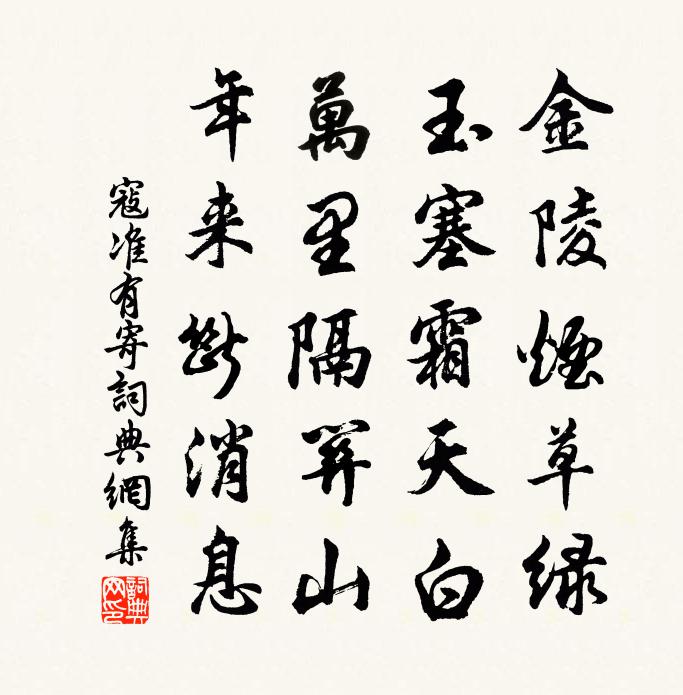 金陵煙草绿
玉塞霜天白
萬里隔關山
年来斷消息
寇准有寄詞典網集
詞典网印